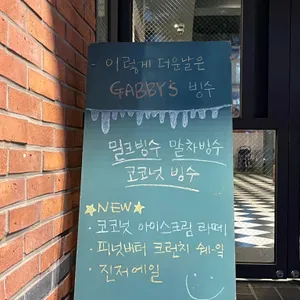 이렇게 더운날은
GABBY's 빙수
밀크빙수 말차빙수
코코넛 빙수
NEW
· 코코넛 아이스크림 라떼
· 피넛버터 크런치 쉐잌
· 진저에일